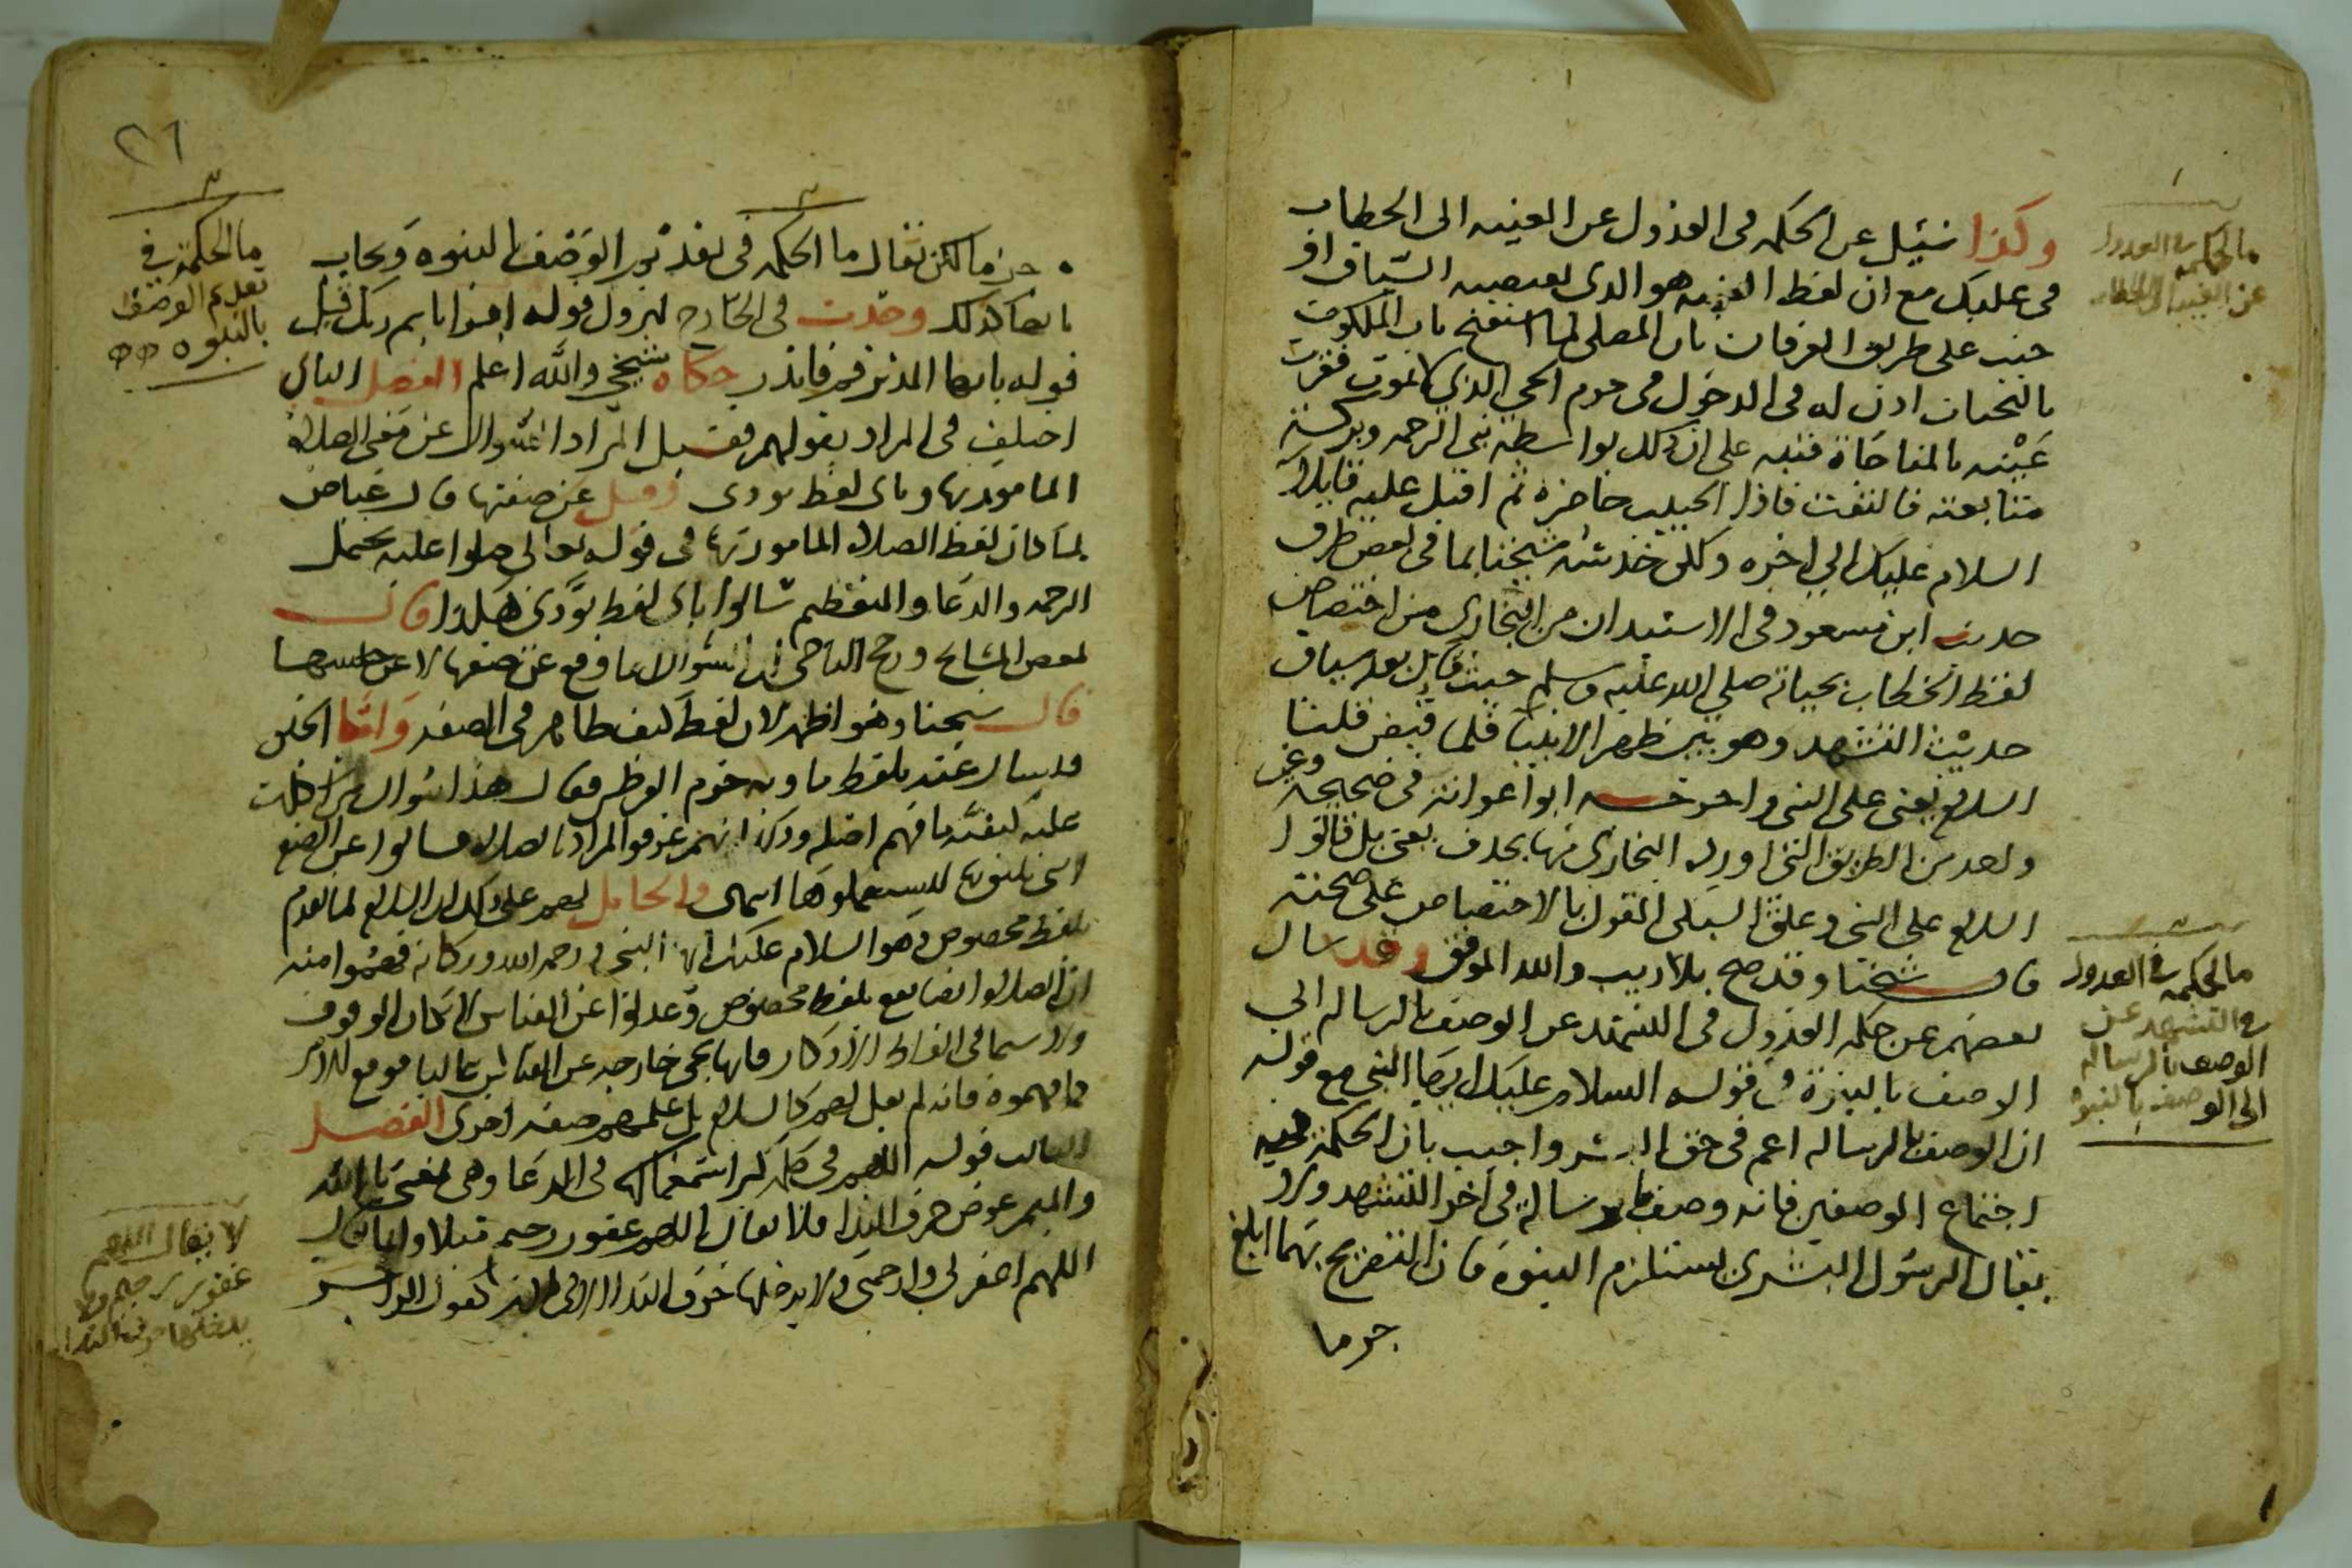 وكذا سُئِل عن الحكمه فى العدول عن الغيبه الى الخطاب
فى عليك مع ان لفظ الغيبه هو الذى يقتضيه السياق او
جنب على طريق العرفان بان المصلى لما استفتح باب الملكوت
بالتحيات اذن له فى الدخول فى حرم الحي الذي لا يموت فقرت
عَيْنه بالمناجاة فنبه على ان ذلك بواسطة نبى الرحمه وبركة
متابعته فالتفت فاذا الحبيب حاضرة ثم اقبل عليه قايلا
السلام عليك الي اخره ولكن خدشه شيخنا بما فى بعض طرق
حديث ابن مسعود فى الاستيدان من البخارى من اختصاص
لفظ الخطاب بحياته صلى الله عليه وسلم حيث قال بعد سياق
حديث التشهد وهو بين ظهرانينا فلما قبض قلنا
السلام يعنى على النبى واخرجه ابوا عوانة فى صحيحه وغير
واحد من الطريق التى اورده البخارى منها بحذف يعنى بل قالوا
السلام على النبى وعلق السبكى القول بالاختصاص على صحته
قال شيخنا وقد صح بلا ريب والله الموفق وقد سال
بعضهم عن حكمه العدول فى التشهد عن الوصف بالرساله الى
الوصف بالنبوة فى قوله السلام عليك ايها النبي مع قوله
ان الوصف بالرساله اعم فى حق البشر واجيب بان الحكمة فيه
اجتماع الوصفين فانه وصف بالرسالة فى اخر التشهد وان
يقال الرسول البشرى يستلزم النبوة فان التصريح بهما ابلغ
جزما
ما الحكمه فى العدول
عن الغيبه الى الخطاب
ما الحكمه فى العدول
فى التشهد عن
الوصف بالرساله
الى الوصف بالنبوة
٢٦
جزما لكن يقال ما الحكمه فى تقديم الوصف بالنبوه ويجاب
بانها كذلك وجدت فى الخارج لنزول قوله اقرا باسم ربك قبل
قوله يا ايها المدثر قم فانذر حكاه شيخي والله اعلم الفصل الثانى
اختلف فى المراد بقولهم كيف فقيل المراد السوال عن معنى الصلاة
المامور بها وباى لفظ يودى وقيل عن صفتها قال عياض
لما كان لفظ الصلاة المامور بها فى قوله تعالى صلوا عليه يحتمل
الرحمه والدعا والتعظيم سالوا باى لفظ يؤدى هكذا قال
بعض المشايخ ورجح الباجى ان السؤال انما وقع عن صفتها لا عن جنسها
قال شيخنا وهو اظهر لان لفظ كيف ظاهر فى الصفه وامّا الجنس
فيسال عنه بلفظ ما وبه جزم القرطبى فقال هذا سوال من اشكلت
عليه كيفية ما فهم اصله وذلك انهم عرفوا المراد بالصلاه فسالوا عن الصفه
التى تليق بها ليستعملوها انتهى والحامل لهم على ذلك ان السلام لما تقدم
بلفظ مخصوص وهو السلام عليك ايها النبى ورحمه الله وبركاته فهموا منه
ان الصلاه ايضا تقع بلفظ مخصوص وعدلوا عن القياس لامكان الوقوف
ولا سيما فى الفاظ الاذكار فانها تجى خارجه عن القياس غالبا فوقع الامر
كما فهموه فانه لم يقل لهم كالسلام بل علمهم صفه اخرى الفصل
الثالث قوله اللهم هى كلمه كثر استعمالها فى الدعا وهى بمعنى يا الله
والميم عوض حرف الندا فلا يقال اللهم غفور رحيم مثلا وانما يقال
اللهم اغفر لى وارحمنى ولا يدخلها حرف الندا الا فى نادر كقول الراجز
ما الحكمة فى
تقديم الوصف
بالنبوه
لا يقال اللهم
غفور رحيم ولا
يدخلها حرف الندا